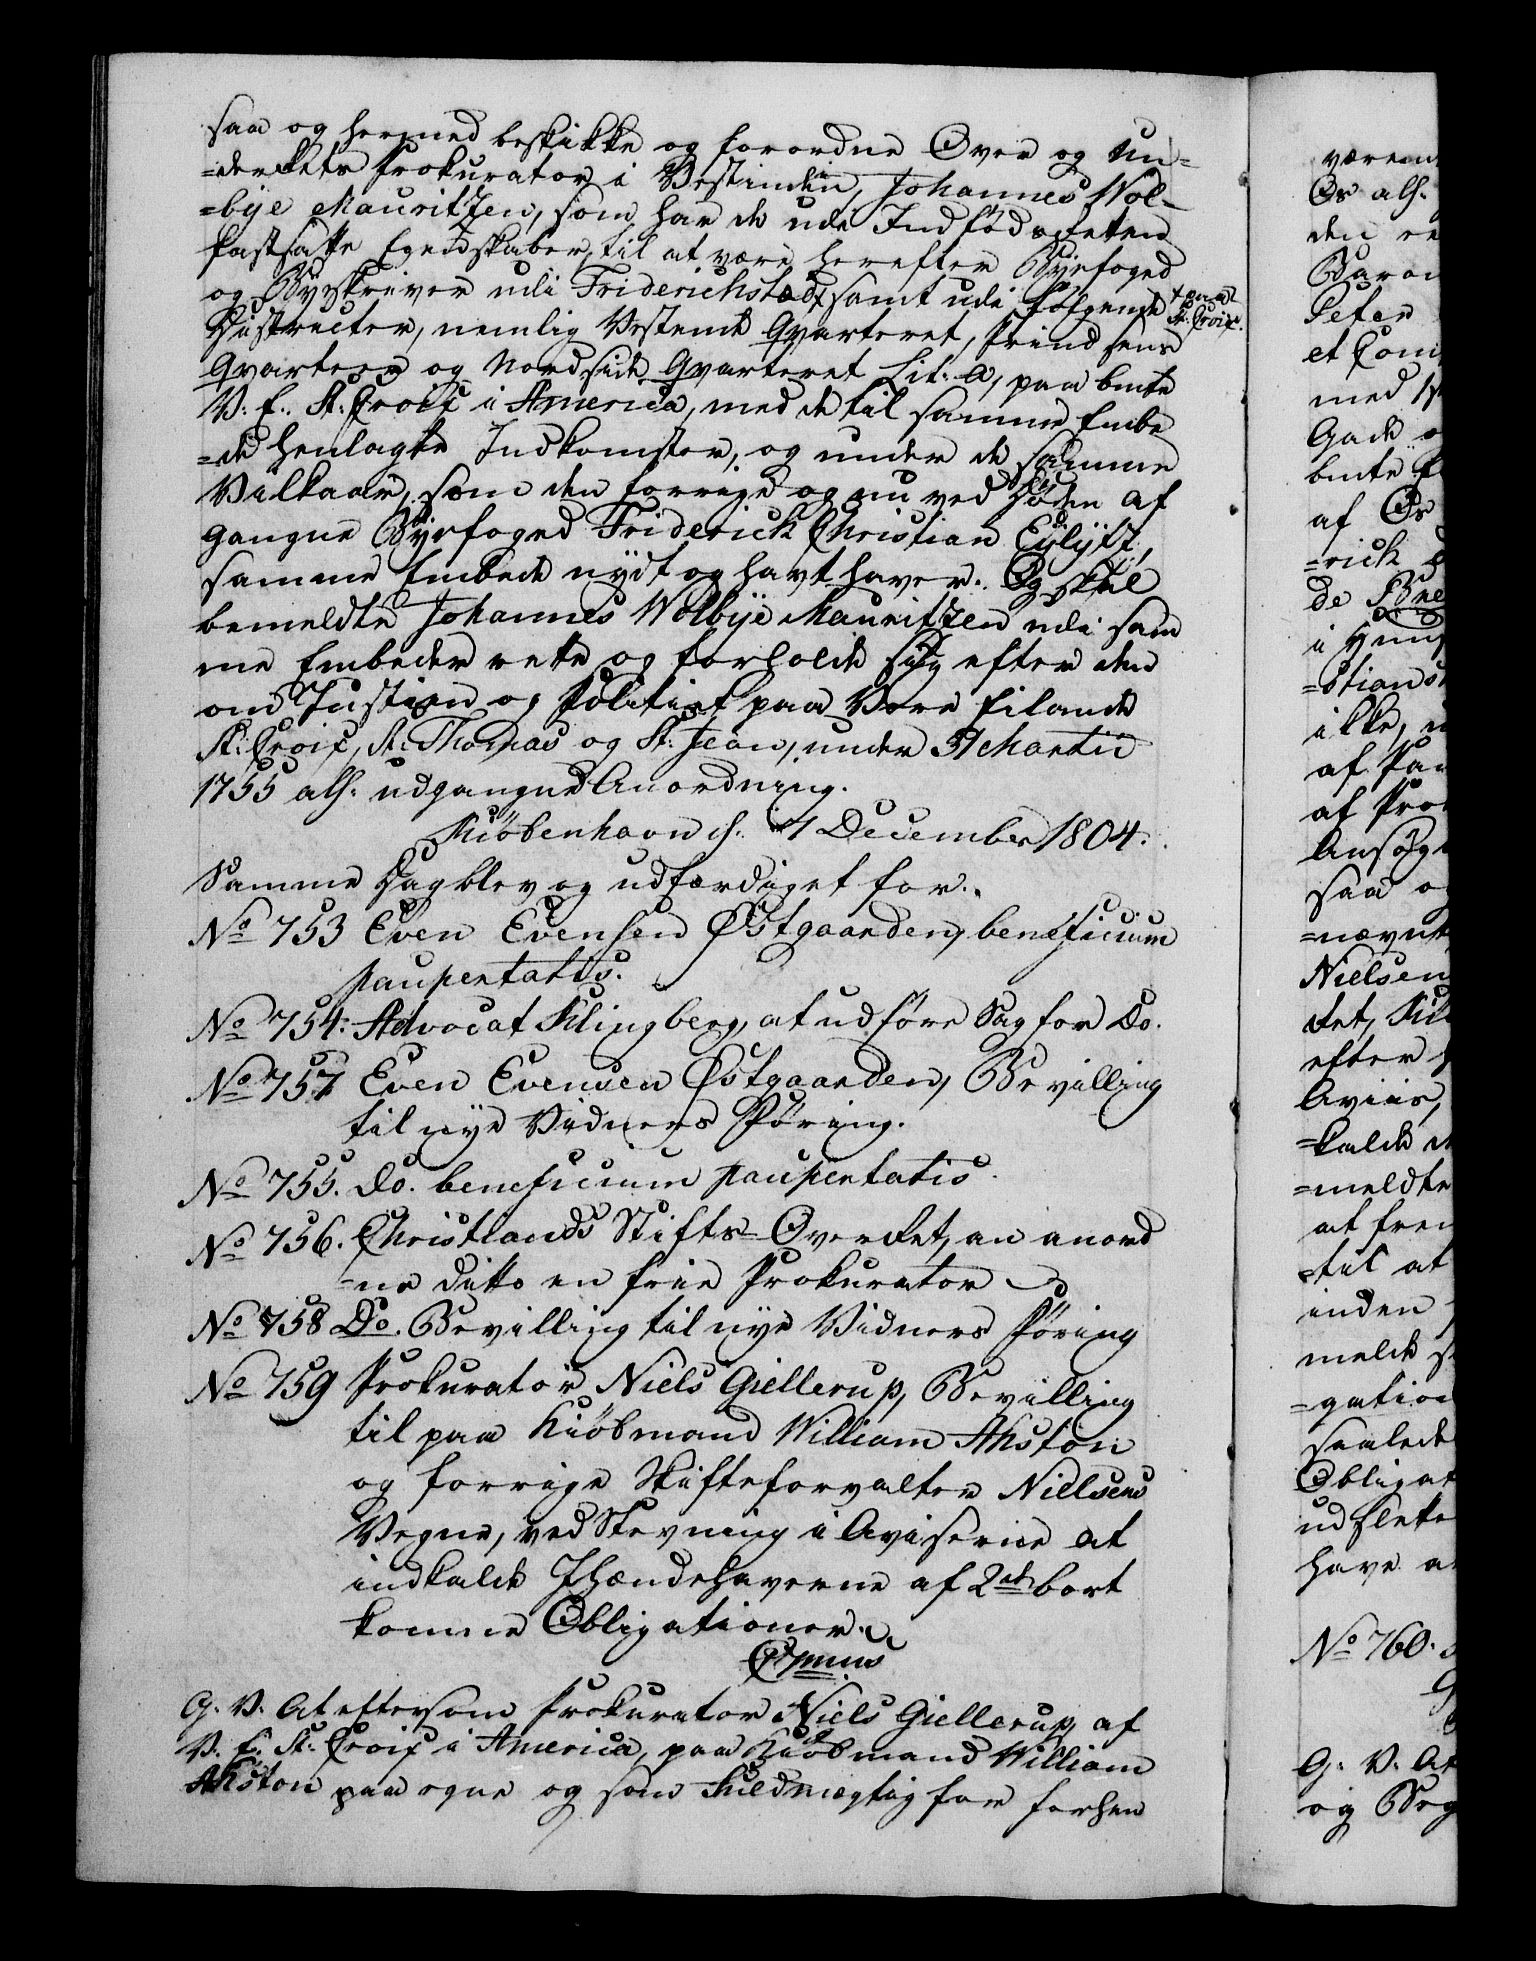 saa og hermed beskikke og forordne Over og Un-
=derRets Prokurator i Vestindien, Johannes Wol-
=bye Mauritzen, som har de udi Indfödsretten
fastsatte Egenskaber, til at være herefter Byefoged
og Byeskriver udi Friderichstæd + samt udi fölgende + paa
St: Croix.
Districter, nemlig Vestende Qvarteret, Prindsens
Qvarteer og Nordside Qvarteret Lit: A, paa bmte
V: E: St: Croix i America, med de til samme Embe
=de henlagte Indkomster, og under de samme
Vilkaar, som den forrige og nu ved Döden af
gangne Byefoged Friderick Christian
samme Embede nydt og havt haver. Og skal
bemeldte Johannes Wolbye Mauritzen udi sam
me Embeder rette og forholde sig efter den
om Justien og Politiet paa Vore Eilande
St: Croix, St: Thomas og St: Jean, under Martii
1755 alh: udgangne Anordning.
Kiöbenhavn d: 7 December 1804.
Samme Dag blev og udfærdiget for.
No 753 Even Evensen Östgaarden, beneficium
paupertatis.
No 754: Advocat Klingberg, at udföre Sag for Do.
No 757 Even Evensen Östgaarden, Bevilling
til nye Vidners Föring.
No 755. Do. beneficium paupertatis.
No 756. Christiands Stifts=OverRet, an anord
=ne ditto en frie Prokurator
No 758 Do. Bevilling til nye Vidners Föring
No 759 Prokurator Niels Giellerup, Bevilling
til paa Kiöbmand William Ahston
og forrige Skifteforvalter Nielsens
Vegne, ved Stevning i Aviserne at
indkalde Ihændehaverne af 2de bort
komne Obligationer.
G. V. At eftersom Prokurator Niels Giellerup, af
V. E. St: Croix i America, paa Kiöbmand William
Ahston paa egne og som Fuldmægtig for forhen
væren
Os alh.
den re
Baron
Peter
et Com
med
Gade
bmte
af Os
=rick
de
i
=stians
ikke,
af
af Pro
Ansög
saa o
=nævnte
Nielsen
det,
efter
Aviis,
=kalde
=meldte
at frem
til at
inden
melde
=gation
saalede
Obligat
udslette
have a
No 760.
G. V. At
og Beg